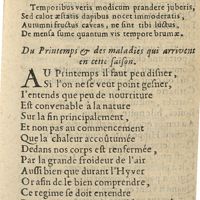 Temporibus veris modicum prandere juberis,
Sed calor æstatis dapibus nocet immoderatis,
Autumni fructus caveas, ne sint tibi luctus.
De mensa sume quantum vis tempore brumæ.
Du Printemps & des maladies qui arrivent
en cette saison.
AU Printemps il faut peu disner,
Si l'on ne se veut point gesner,
I'entends que peu de nourriture
Est convenable à la nature
Sur la fin principalement,
Et non pas au commencement
Que la chaleur accoûtumée
Dedans nos corps est renfermée,
Par la grande froideur de l'air
Aussi bien que durant l'Hyver
Or afin de le bien comprendre,
Ce regime se doit entendre